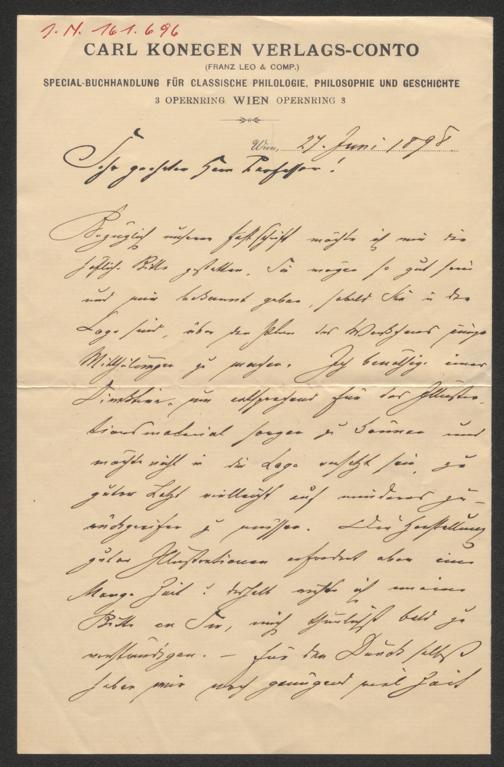 J. N. 161.696
CARL KONEGEN VERLAGS-CONTO
(FRANZ LEO & COMP.)
SPECIAL-BUCHHANDLUNG FÜR CLASSISCHE PHILOLOGIE, PHILOSOPHIE UND GESCHICHTE
3 OPERNRING WIEN OPERNRING 3
Wien, 27. Juni 1898.
Sehr geehrter Herr Professor!
Bezüglich unserer Festschrift möchte ich mir die
höflich. Bitte gestatten, Sie mögen so gut sein
und mir bekannt geben, sobald Sie in der
Lage sind, über den Plan des Werkes einige
Mittheilungen zu machen. Ich benöthige einer
Direktive, um entsprechend für das Illustra-
tionsmaterial sorgen zu können und
möchte nicht in die Lage versetzt sein, zu
guter Letzt vielleicht auf minderes zu-
rückgreifen zu müssen. Die Herstellung
guter Illustrationen erfordert eben eine
Menge Zeit; deshalb richte ich meine
Bitte an Sie, mich thunlichst bald zu
verständigen. – Für den Druck selbst
haben wir noch genügend viel Zeit